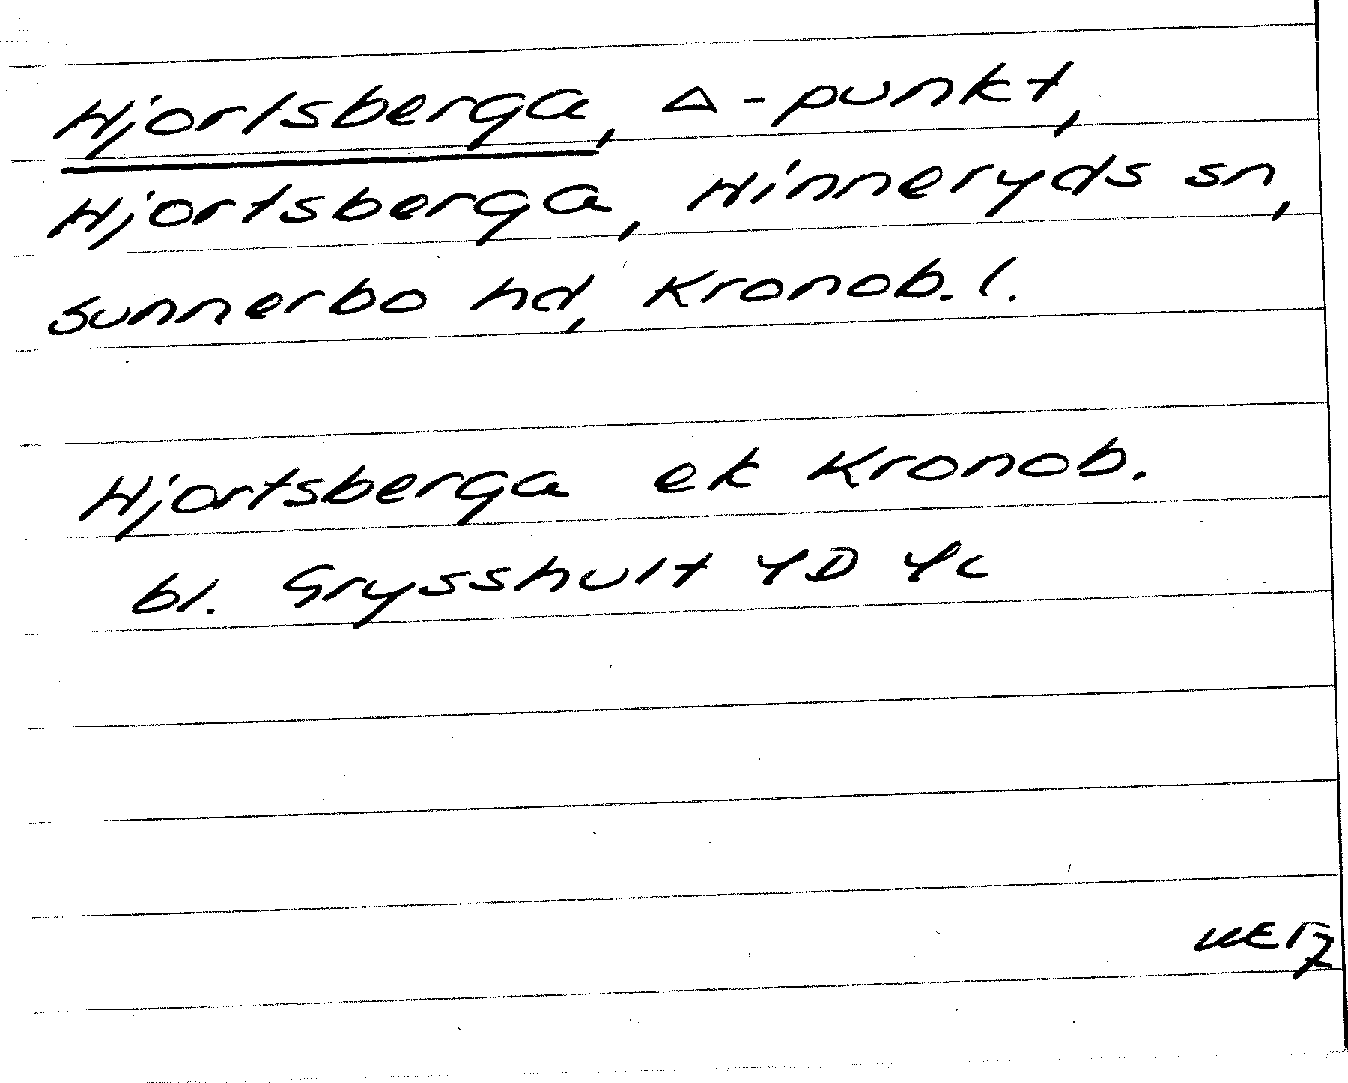 Hjortsberga, △-punkt,
Hjortsberga, Hinneryds sn,
Sunnerbo hd, Kronob. l.
Hjortsberga ek Kronob.
bl. Grysshult 4D 4c